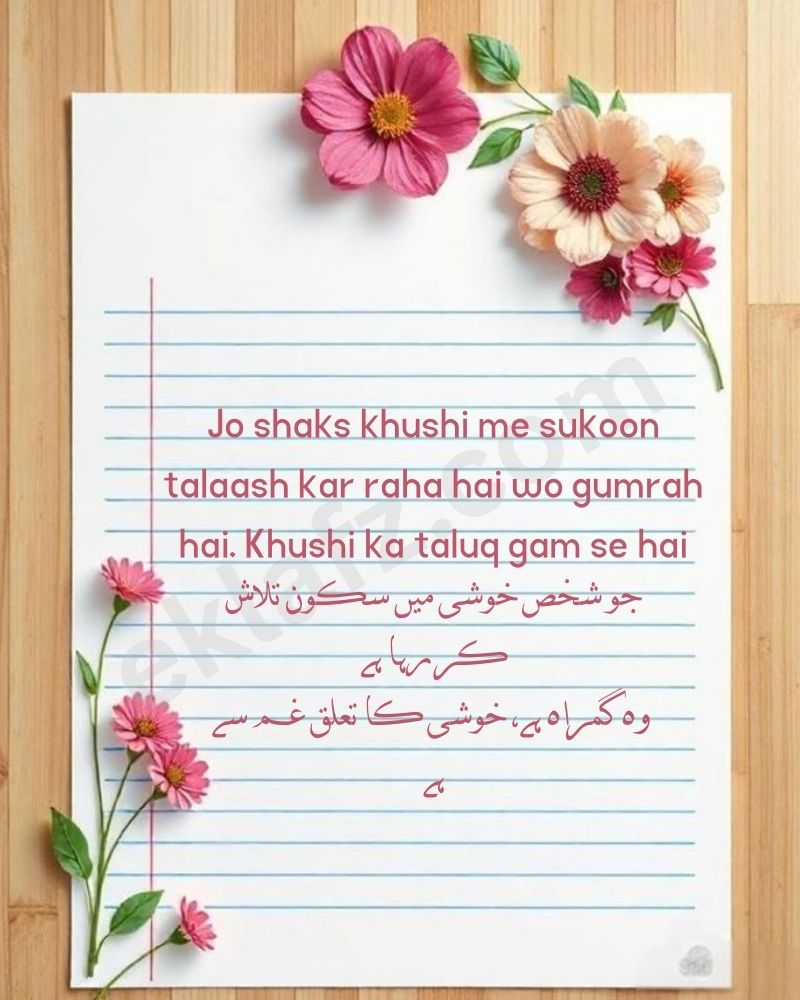 Jo shaks khushi me sukoon
talaash kar raha hai wo gumrah
hai. Khushi ka taluq gam se hai
جو شخص خوشی میں سکون تلاش
کر رہا ہے
وہ گمراہ ہے، خوشی کا تعلق غم سے
ہے
eklafz.com